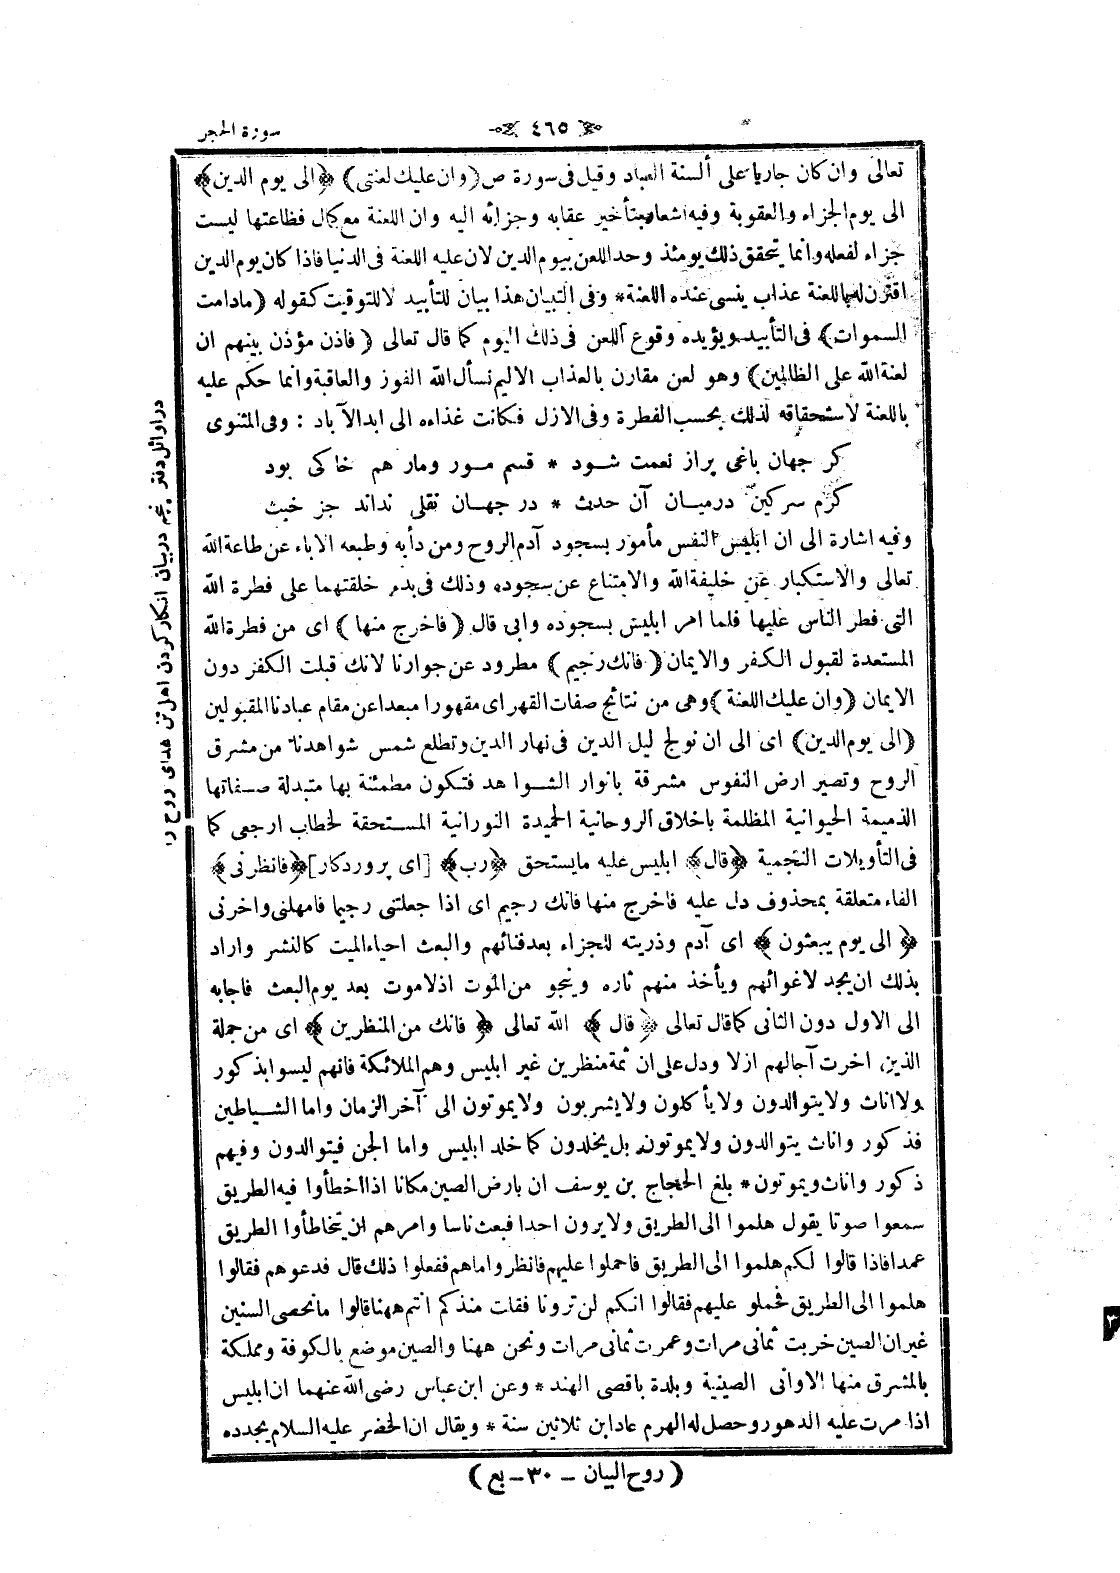 سورة الحجر
٤٦٥
تعالى وان كان جاريا على ألسنة العباد وقيل فى سورة ص (وان عليك لعنتى) ﴿الى يوم الدين﴾
الى يوم الجزاء والعقوبة وفيه اشعار بتأخير عقابه وجزائه اليه وان اللعنة مع كمال فظاعتها ليست
جزاء لفعله وانما يتحقق ذلك يومئذ وحد اللعن بيوم الدين لان عليه اللعنة فى الدنيا فاذا كان يوم الدين
اقترن له باللعنة عذاب ينسى عنده اللعنة * وفى التبيان هذا بيان للتأبيد لا للتوقيت كقوله (مادامت
السموات) فى التأبيد ويؤيده وقوع اللعن فى ذلك اليوم كما قال تعالى (فاذن مؤذن بينهم ان
لعنة الله على الظالمين) وهو لعن مقارن بالعذاب الاليم نسأل الله الفوز والعاقبة وانما حكم عليه
باللعنة لاستحقاقه لذلك بحسب الفطرة وفى الازل فكانت غذاءه الى ابد الآباد : وفى المثنوى
كر جهان باغى پراز نعمت شود * قسم مور ومار هم خاكى بود
كرم سركين درميان آن حدث * در جهان نقلى نداند جز خبث
وفيه اشارة الى ان ابليس النفس مأمور بسجود آدم الروح ومن دأبه وطبعه الاباء عن طاعة الله
تعالى والاستكبار عن خليفة الله والامتناع عن سجوده وذلك فى بدء خلقتهما على فطرة الله
التى فطر الناس عليها فلما امر ابليس بسجوده وابى قال (فاخرج منها) اى من فطرة الله
المستعدة لقبول الكفر والايمان (فانك رجيم) مطرود عن جوارنا لانك قبلت الكفر دون
الايمان (وان عليك اللعنة) وهى من نتائج صفات القهر اى مقهورا مبعدا عن مقام عبادنا المقبولين
(الى يوم الدين) اى الى ان نولج ليل الدين فى نهار الدين وتطلع شمس شواهدنا من مشرق
الروح وتصير ارض النفوس مشرقة بانوار الشواهد فتكون مطمئنة بها متبدلة صفاتها
الذميمة الحيوانية المظلمة باخلاق الروحانية الحميدة النورانية المستحقة لخطاب ارجعى كما
فى التأويلات النجمية ﴿قال﴾ ابليس عليه مايستحق ﴿رب﴾ [اى پروردكار] ﴿فانظرنى﴾
الفاء متعلقة بمحذوف دل عليه فاخرج منها فانك رجيم اى اذا جعلتنى رجيما فامهلنى واخرنى
﴿الى يوم يبعثون﴾ اى آدم وذريته للجزاء بعد فنائهم والبعث احياء الميت كالنشر واراد
بذلك ان يجد لاغوائهم ويأخذ منهم ثاره وينجو من الموت اذ لاموت بعد يوم البعث فاجابه
الى الاول دون الثانى كما قال تعالى ﴿قال﴾ الله تعالى ﴿فانك من المنظرين﴾ اى من جملة
الذين اخرت آجالهم ازلا ودل على ان ثمة منظرين غير ابليس وهم الملائكة فانهم ليسوا بذكور
ولا اناث ولا يتوالدون ولا يأكلون ولا يشربون ولا يموتون الى آخر الزمان واما الشياطين
فذكور واناث يتوالدون ولا يموتون بل يخلدون كما خلد ابليس واما الجن فيتوالدون وفيهم
ذكور واناث ويموتون * بلغ الحجاج بن يوسف ان بارض الصين مكانا اذا اخطأوا فيه الطريق
سمعوا صوتا يقول هلموا الى الطريق ولا يرون احدا فبعث ناسا وامرهم ان يتخاطأوا الطريق
عمدا فاذا قالوا لكم هلموا الى الطريق فاحملوا عليهم فانظروا ماهم ففعلوا ذلك قال فدعوهم فقالوا
هلموا الى الطريق فحملو عليهم فقالوا انكم لن ترونا فقات منذ كم انتم ههنا قالوا مانحصى السنين
غير ان الصين خربت ثمانى مرات وعمرت ثمانى مرات ونحن ههنا والصين موضع بالكوفة ومملكة
بالمشرق منها الاوانى الصينية وبلدة باقصى الهند * وعن ابن عباس رضى الله عنهما ان ابليس
اذا مرت عليه الدهور وحصل له الهرم عاد ابن ثلاثين سنة * ويقال ان الخضر عليه السلام يجدده
دراوائل دفتر پنجم دربيان انكار كردن اهل تن غداى روح را
(روح البيان – ٣٠ – بع)
٣